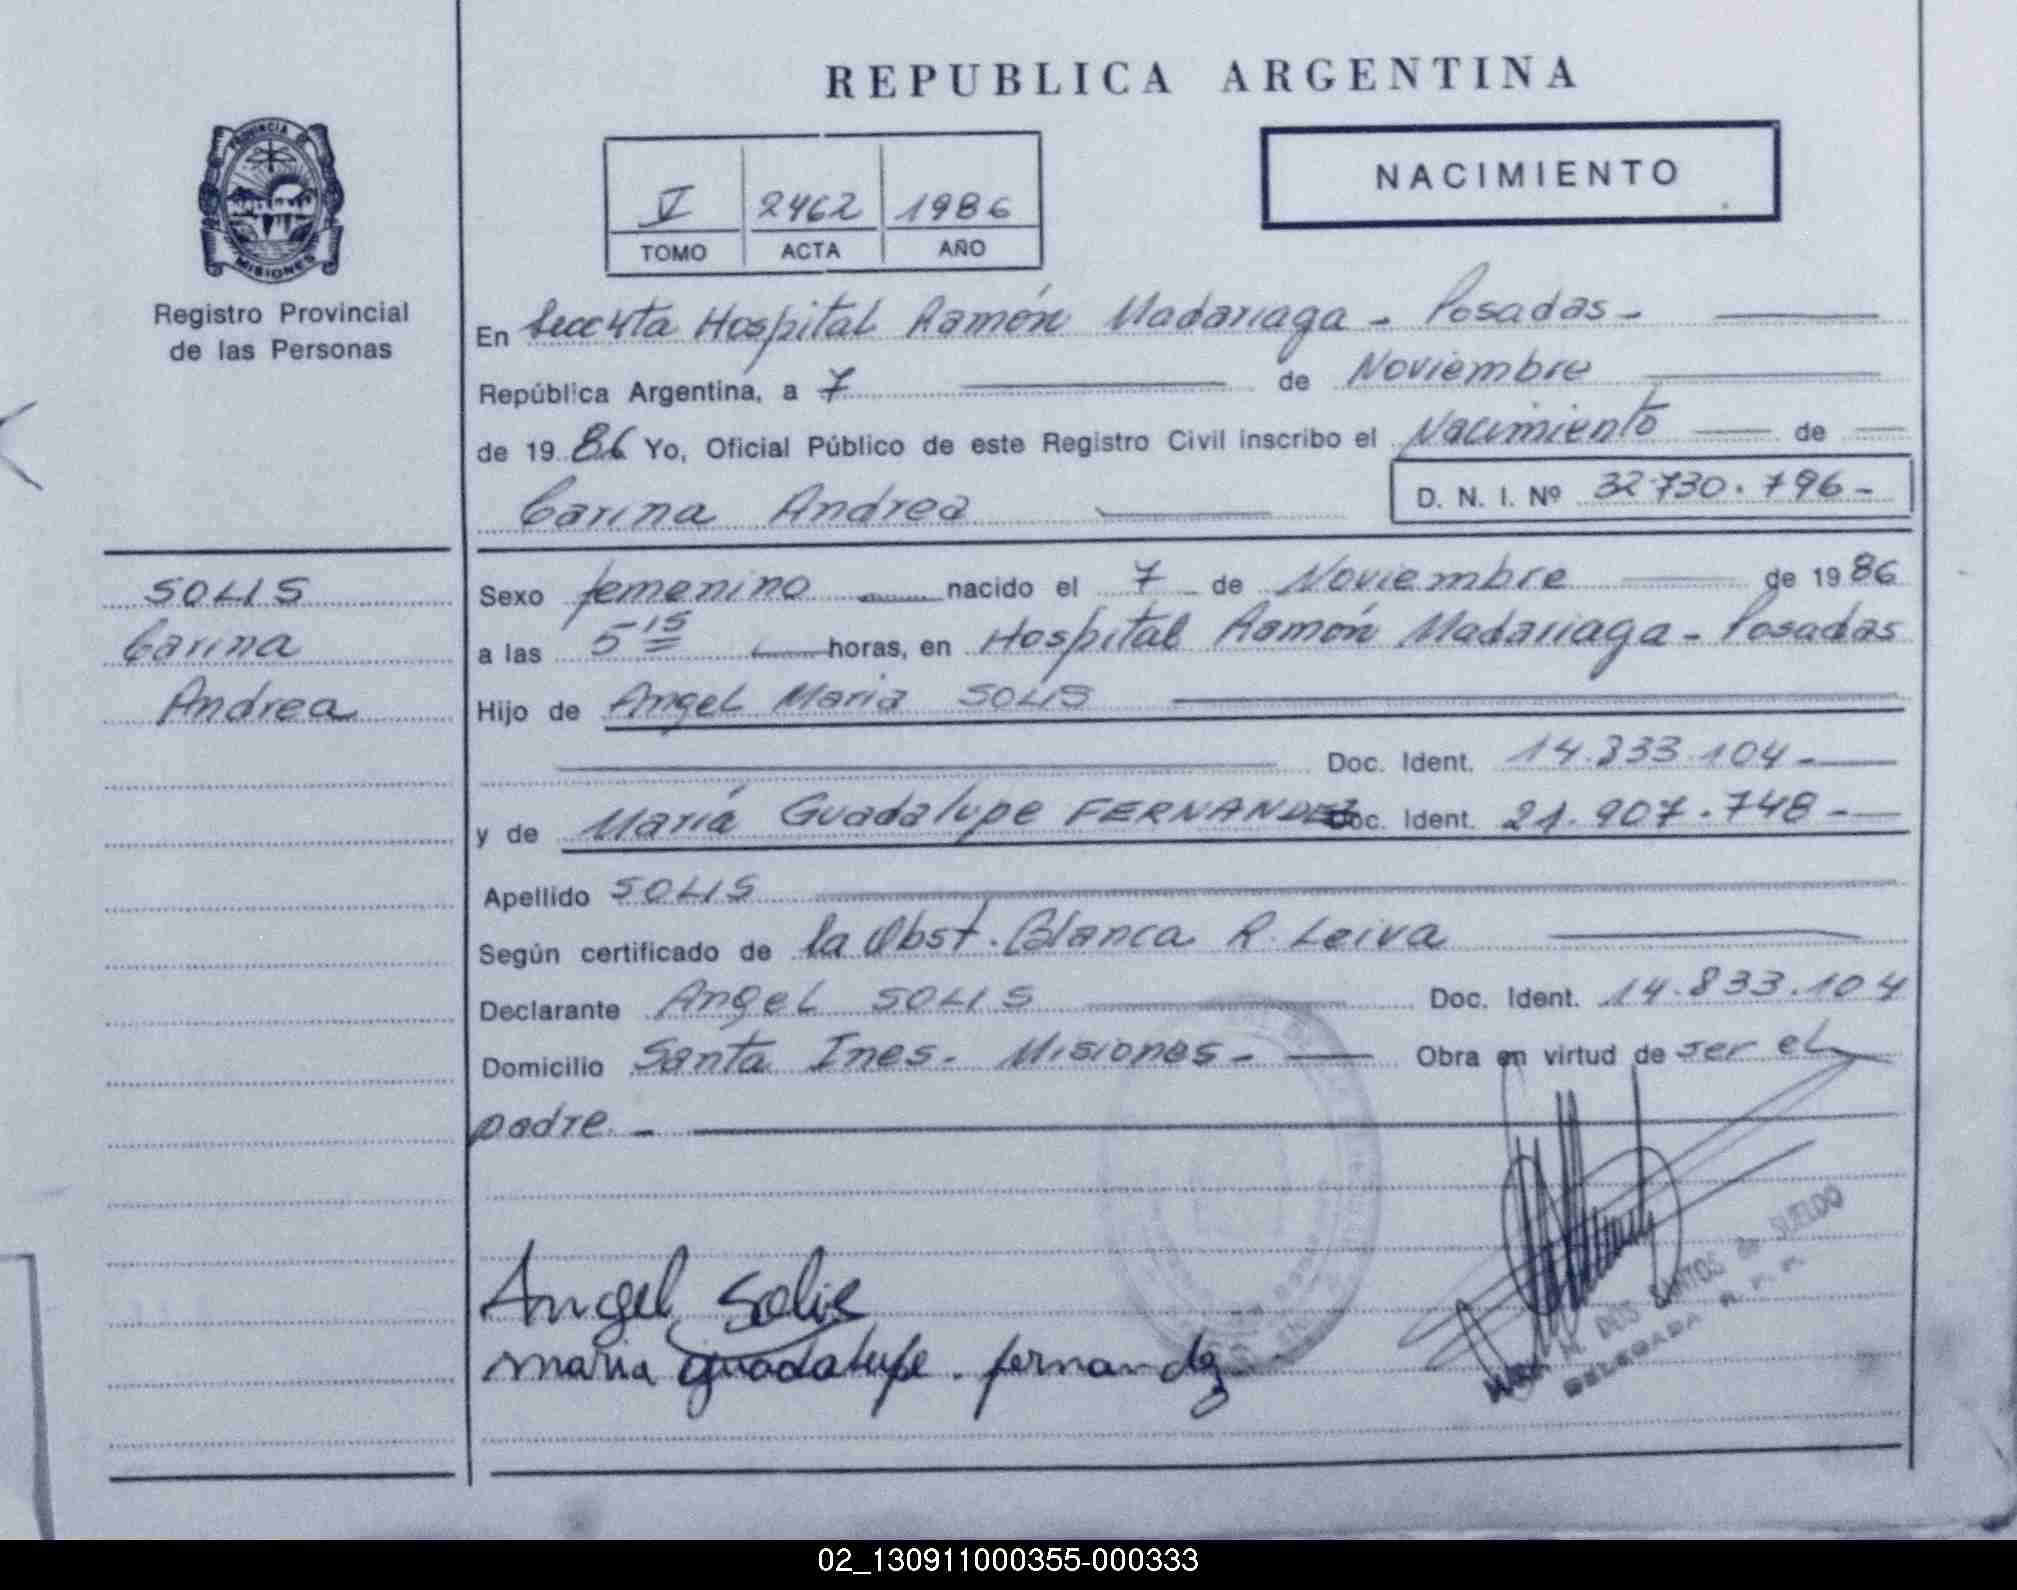 REPUBLICA ARGENTINA
PROVINCIA DE
MISIONES
Registro Provincial
de las Personas
V 2462 1986
TOMO ACTA AÑO
NACIMIENTO
En Hospital Ramón Madariaga - Posadas -
República Argentina, a 7 de Noviembre
de 1986 Yo, Oficial Público de este Registro Civil inscribo el Nacimiento de
Carina Andrea
D. N. I. Nº 32.730.796 -
SOLIS
Carina
Andrea
Sexo femenino nacido el 7 de Noviembre de 1986
a las 5 15 horas, en Hospital Ramón Madariaga - Posadas
Hijo de Angel Maria SOLIS
Doc. Ident. 14.833.104 -
y de María Guadalupe FERNANDEZ Doc. Ident. 21.907.748 -
Apellido SOLIS
Según certificado de la Obst. Blanca R. Leiva
Declarante Angel SOLIS Doc. Ident. 14.833.104
Domicilio Santa Ines - Misiones - Obra en virtud de ser el
padre. -
Angel Solis
maria guadalupe. fernandez
M. DOS SANTOS de SUELDO
DELEGADA R. P. P.
02_130911000355-000333